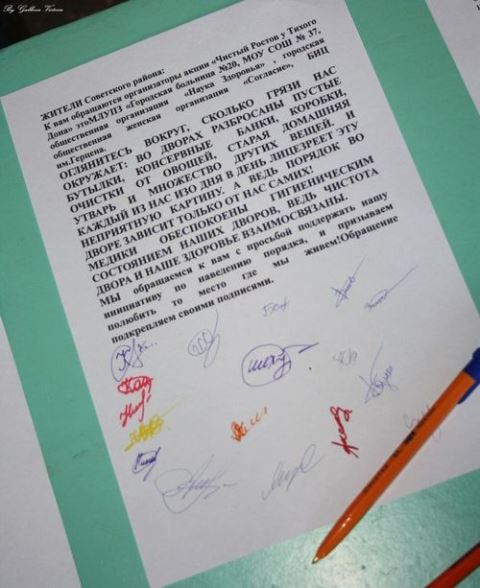 ЖИТЕЛИ Советского района:
К вам обращаются организаторы акции «Чистый Ростов у Тихого
Дона» этоМЛУПЗ «Городская больница №20, МОУ СОШ № 37,
общественная организация «Наука Здоровья» , городская
общественная женская организация «Согласие», БИЦ
им.Герцена.
ОГЛЯНИТЕСЬ ВОКРУГ, СКОЛЬКО ГРЯЗИ НАС
ОКРУЖАЕТ: ВО ДВОРАХ РАЗБРОСАНЫ ПУСТЫЕ
БУТЫЛКИ, КОНСЕРВНЫЕ БАНКИ, КОРОБКИ,
ОЧИСТКИ ОТ ОВОЩЕЙ, СТАРАЯ ДОМАШНЯЯ
УТВАРЬ И МНОЖЕСТВО ДРУГИХ ВЕЩЕЙ. И
КАЖДЫЙ ИЗ НАС ИЗО ДНЯ В ДЕНЬ ЛИЦЕЗРЕЕТ ЭТУ
НЕПРИЯТНУЮ КАРТИНУ. А ВЕДЬ ПОРЯДОК ВО
ДВОРЕ ЗАВИСИТ ТОЛЬКО ОТ НАС САМИХ!
МЕДИКИ ОБЕСПОКОЕНЫ ГИГИЕНИЧЕСКИМ
СОСТОЯНИЕМ НАШИХ ДВОРОВ, ВЕДЬ ЧИСТОТА
ДВОРА И НАШЕ ЗДОРОВЬЕ ВЗАИМОСВЯЗАНЫ.
МЫ обращаемся к вам с просьбой поддержать нашу
инициативу по наведению порядка, и призываем
полюбить то место где мы живем!Обращение
подкрепляем своими подписями.